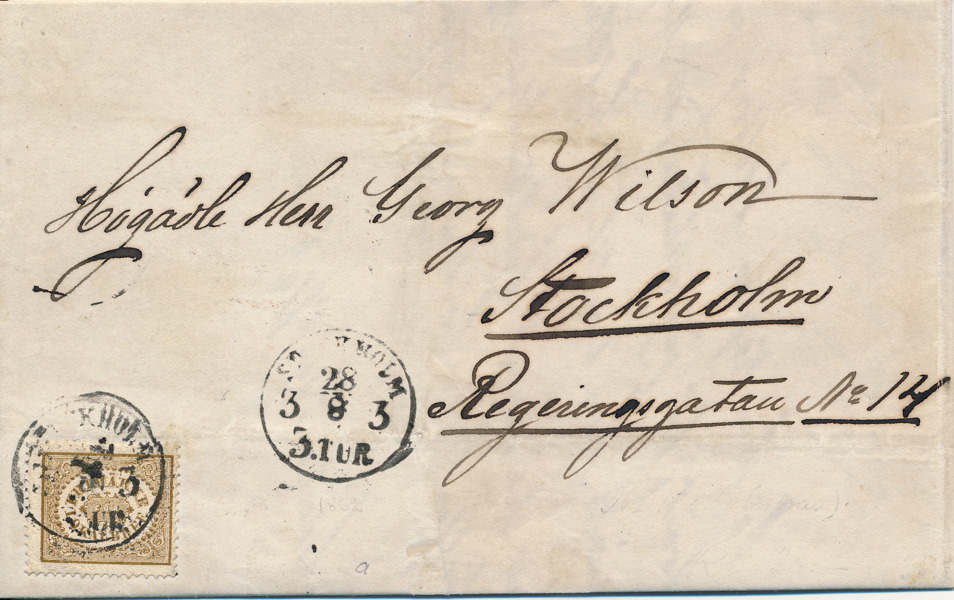 Högädle Herr Georg Wilson
Stockholm
Regeringsgatan No 14
STOCKHOLM
28
3 8 3
3.TUR
3
TUR
1862